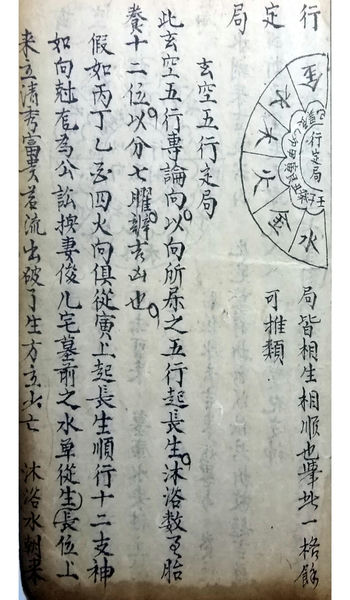 行
定
局
金
木
火
火
金
水
行定局
局皆相生相順也舉此一格餘
可推類
玄空五行定局
此玄空五行專論向以向所屬之五行起長生沐浴數至胎
養十二位以分七曜辨吉凶也
假如丙丁乙酉四火向俱從寅上起長生順行十二支神
如向對宮為公訟換妻後凡宅墓前之水单從生長位上
來立清秀富貴若流出破了生方立少亡 沐浴水朝來